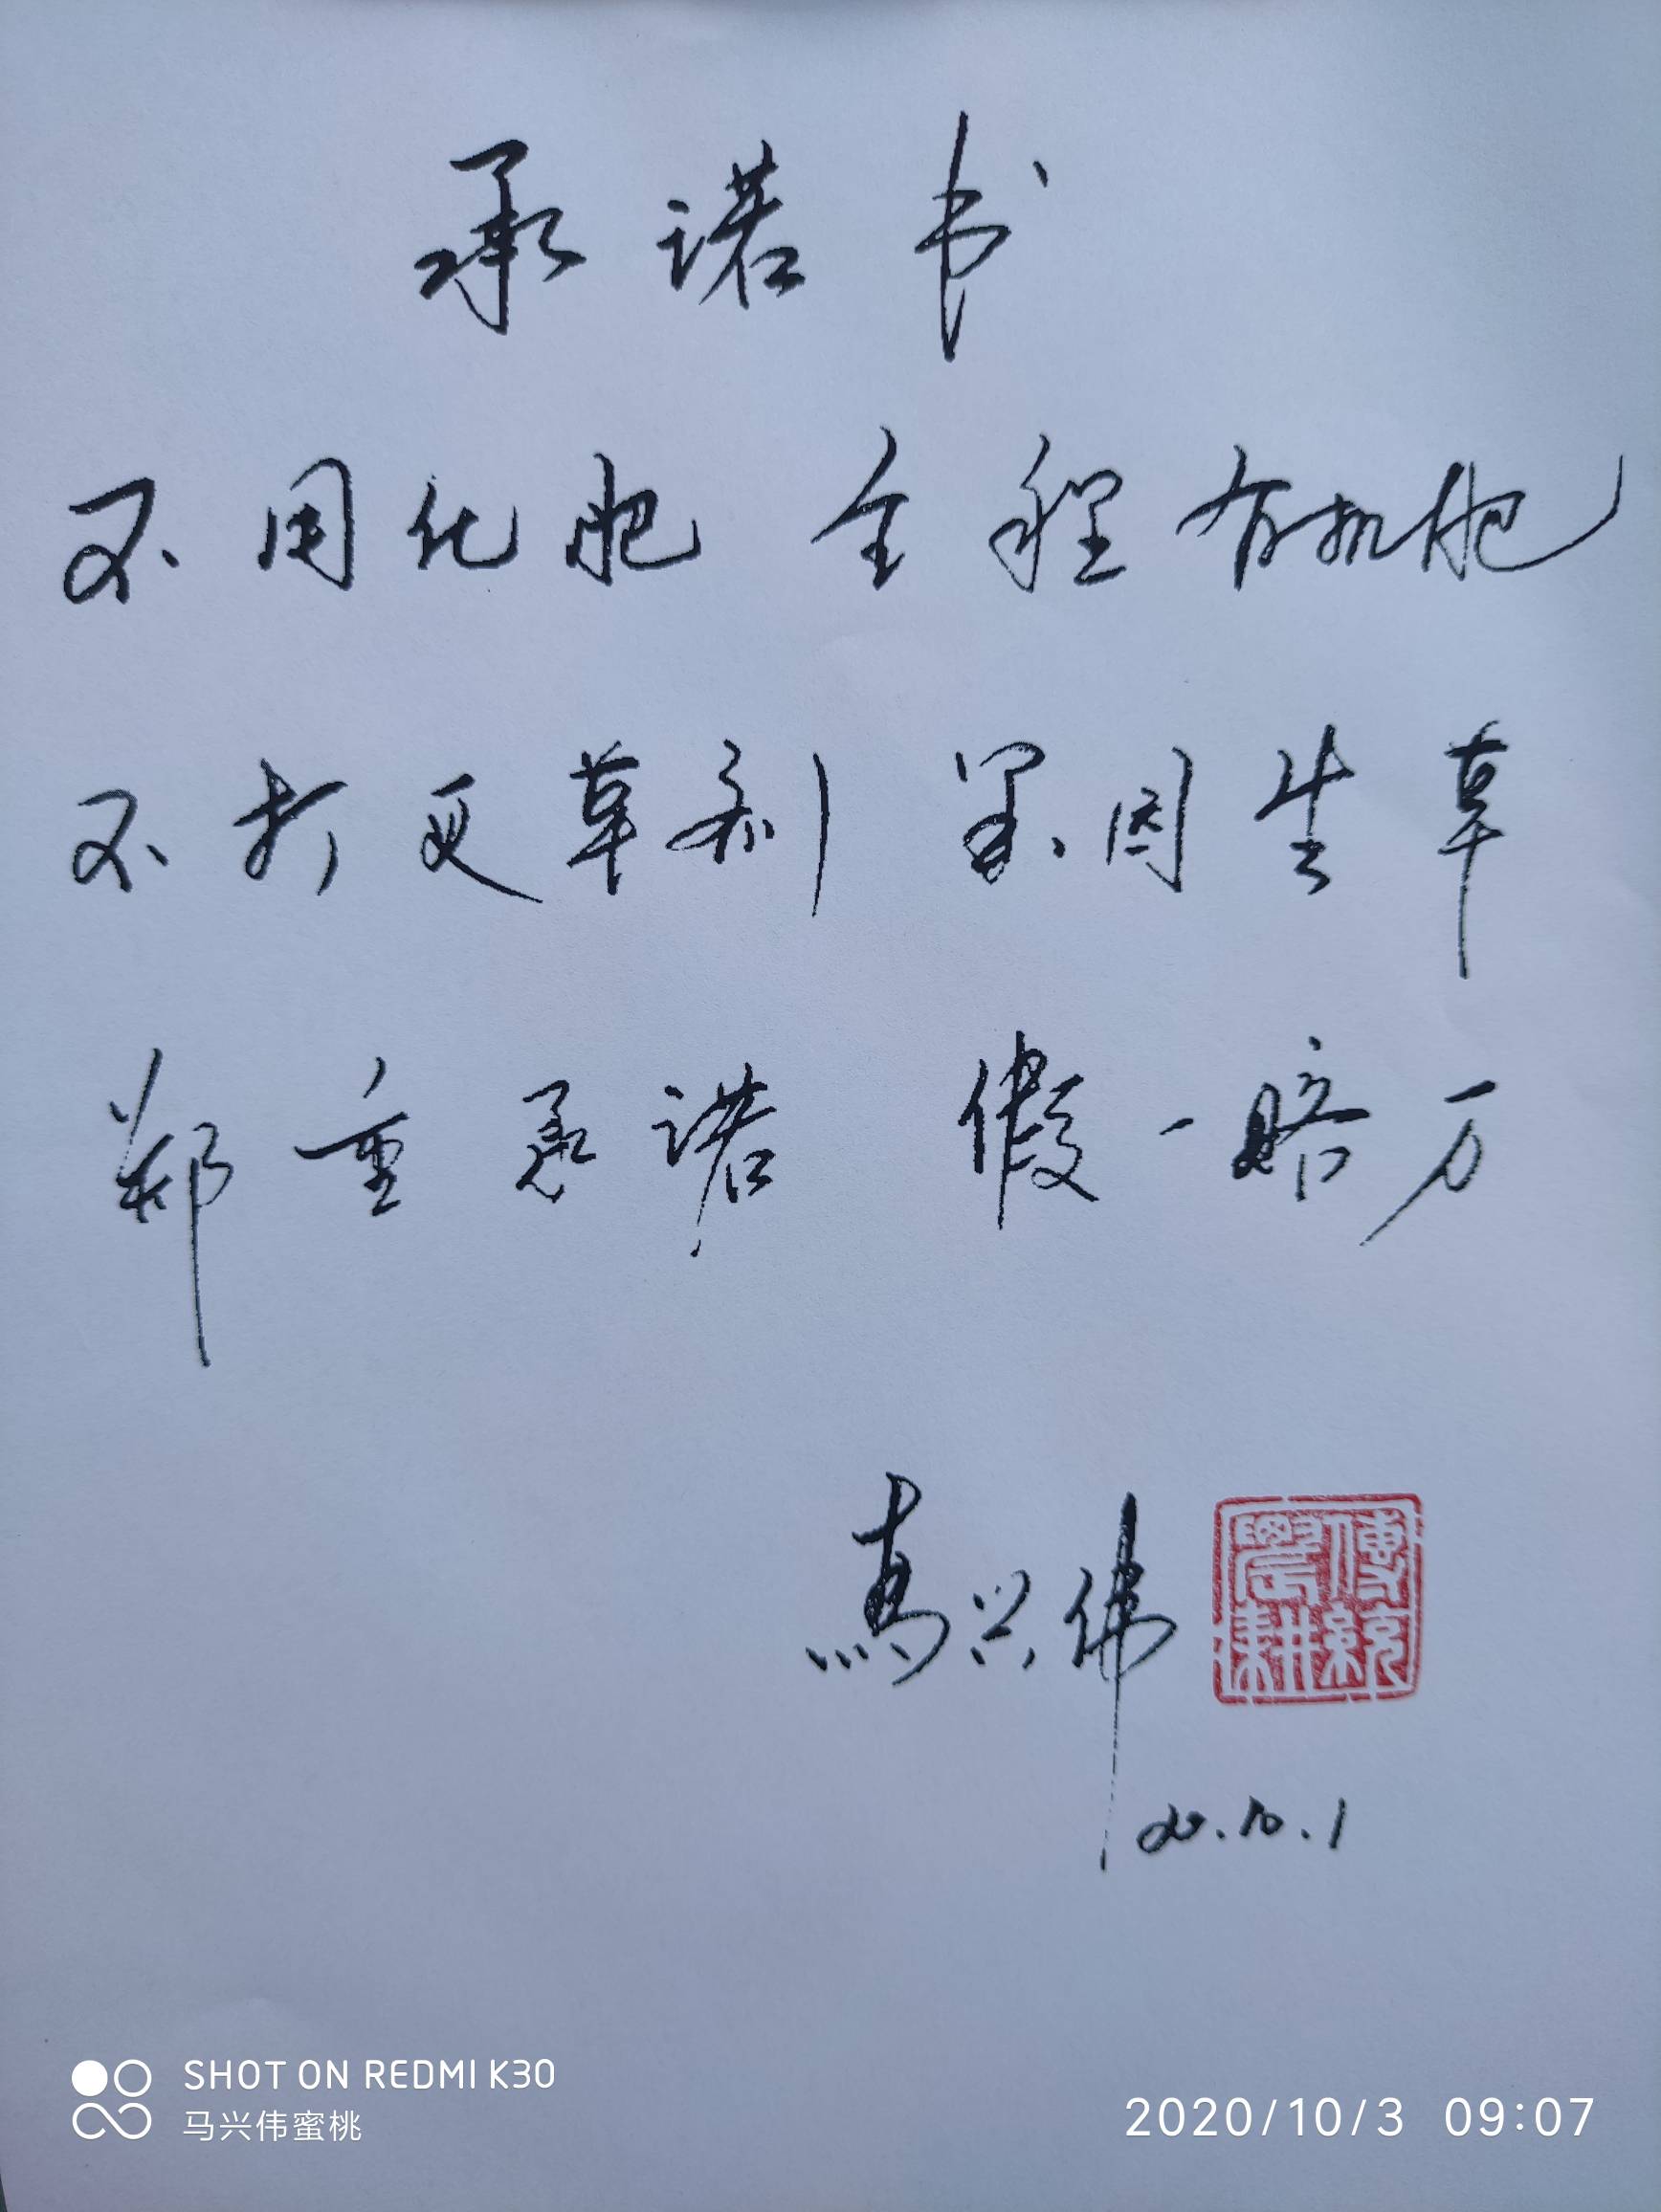 承诺书
不用化肥 全程有机肥
不打灭草剂 果园生草
郑重承诺 假一赔万
马兴伟
傳統農耕
20.10.1
SHOT ON REDMI K30
马兴伟蜜桃
2020/10/3 09:07